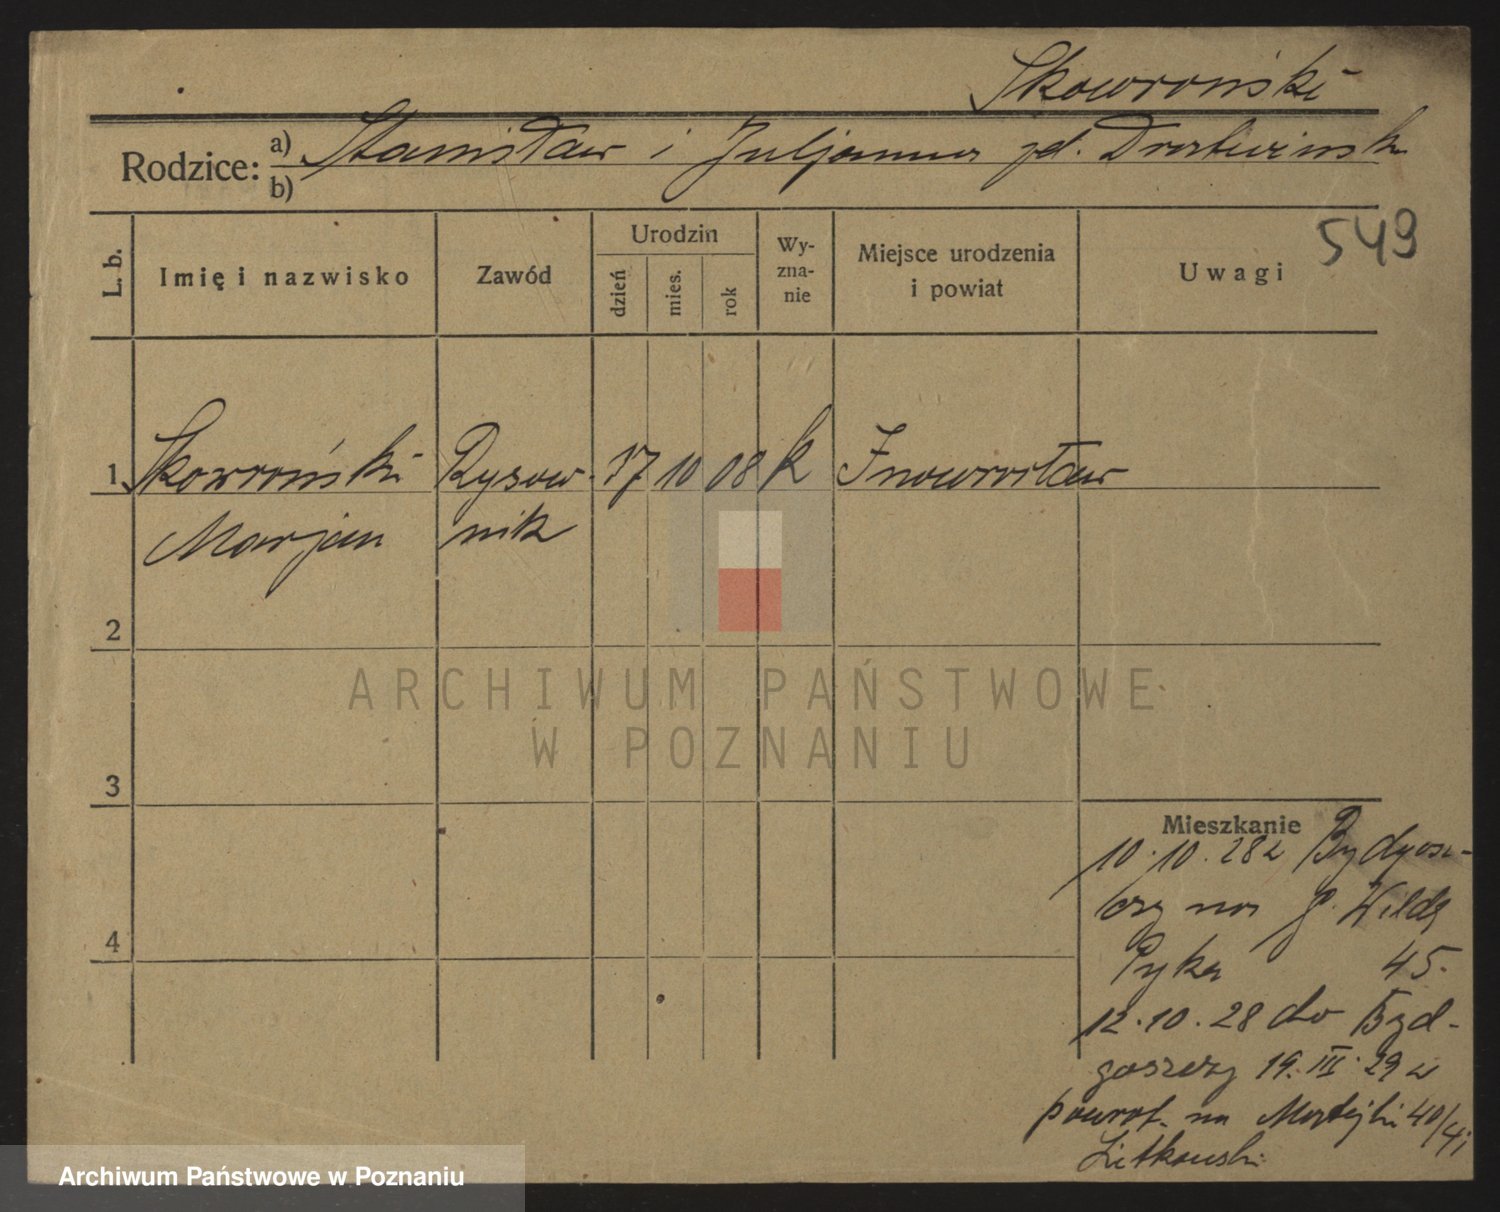 Skowroński
Rodzice: a) Stanisław i Juljanna zd.
b)
549
L. b.
Imię i nazwisko
Zawód
Urodzin
dzień
mies.
rok
Wy-
zna-
nie
Miejsce urodzenia
i powiat
Uwagi
1 Skowroński Rysow- 17 10 08 k Inowrocław
Marjan nik
2
ARCHIWUM PAŃSTWOWE
W POZNANIU
3
4
Mieszkanie
10.10.28 z Bydgosz-
czy na G. Wildę
Pyka 45.
12.10.28 do Byd-
goszczy 19.III.29 z
powrot. na Matejki 40/41
Litkowski
Archiwum Państwowe w Poznaniu